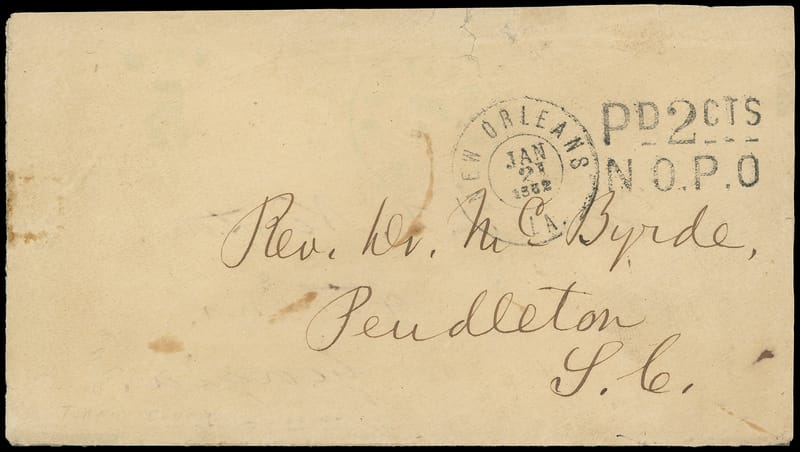 NEW ORLEANS
JAN
21
1862
LA.
PD 2 CTS
N.O.P.O
Rev. Dr. McByrde,
Pendleton
S.C.